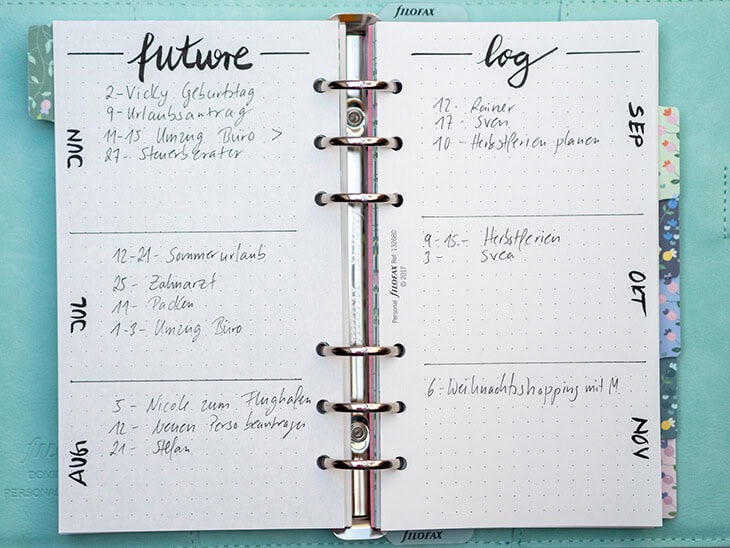 FILOFAX
future
JUN
2- Vicky Geburtstag
9- Urlaubsantrag
11-15 Umzug Büro >
27- Steuerberater
JUL
12-21- Sommerurlaub
25- Zahnarzt
11- Packen
1-3- Umzug Büro
AUG
5- Nicole zum Flughafen
12- Neuen Perso beantragen
21- Stefan
log
SEP
12- Rainer
17- Sven
10- Herbstferien planen
OKT
9-15.- Herbstferien
3- Svea
NOV
6-Weihnachtsshopping mit M.
Personal FILOFAX Ref: 132680
© 2017
FILOFAX